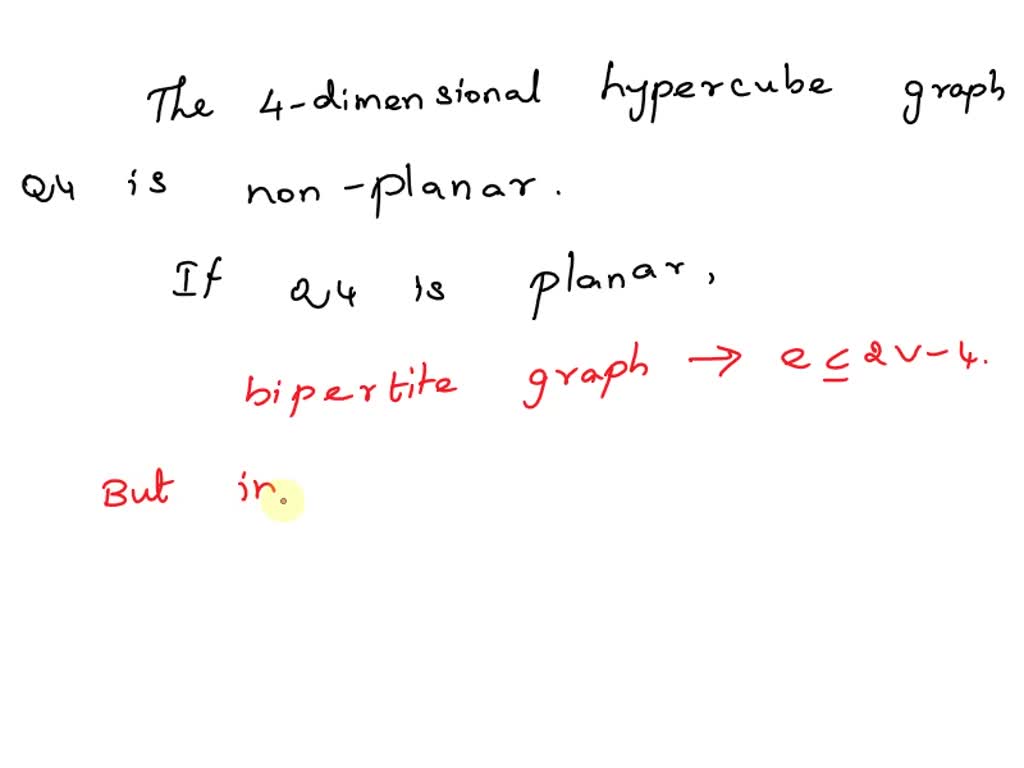 The 4-dimensional hypercube graph
Q4 is non-planar.
If Q4 is planar,
bipertite graph → e ≤ 2v-4.
But in